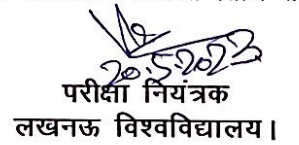 20.5.2023
परीक्षा नियंत्रक
लखनऊ विश्वविद्यालय।